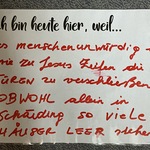 ch bin heute hier, weil...
es menschenunwürdig
zu Jesus Zeiten die
TÜREN zu verschließen
OBWOHL allein in
so viele
HÄUSER LEER stehen